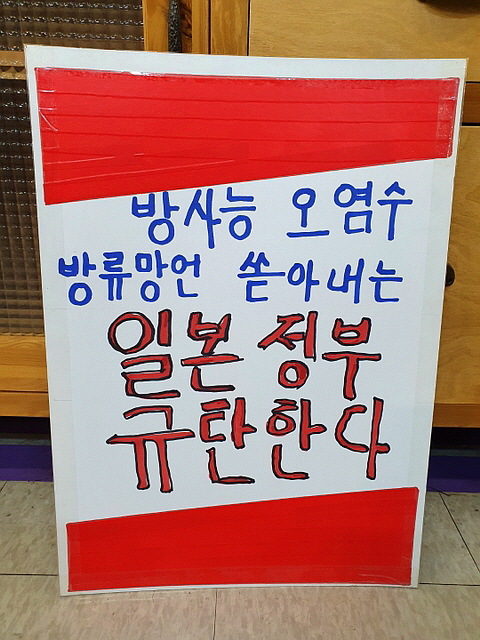 방사능 오염수
방류망언 쏟아내는
일본 정부
규탄한다